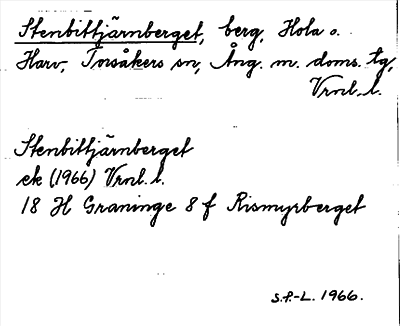 Stenbittjärnberget, berg, Hola o.
Harv, Torsåkers sn, Ång. m. doms. tg,
Vrnl. l.
Stenbittjärnberget
ek (1966) Vrnl. l.
18 H Graninge 8 f Rismyrberget
S.P.-L. 1966.